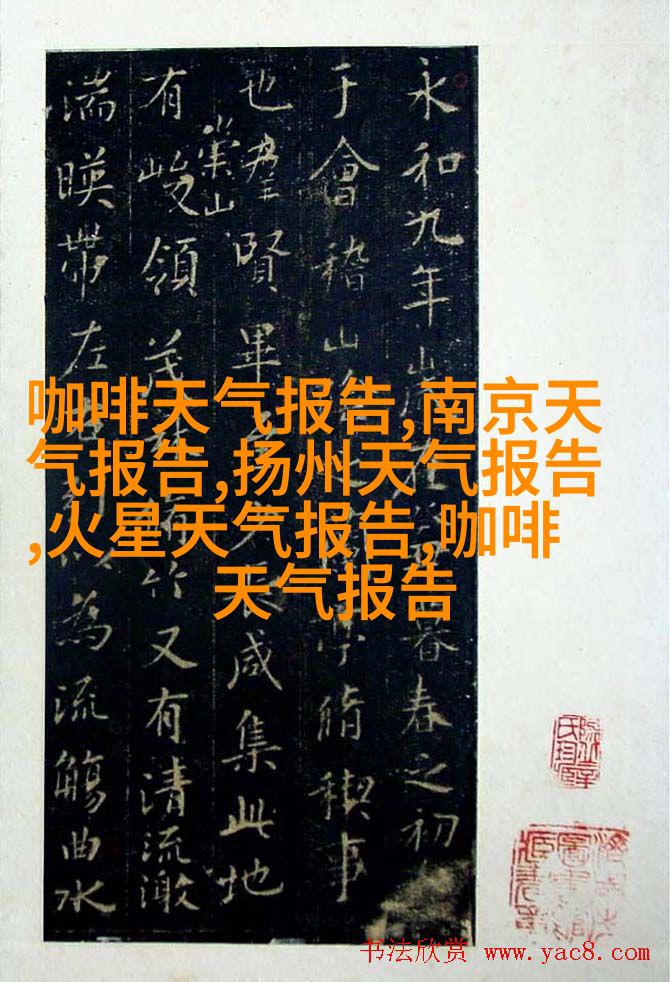 永和九年暮春之初
于會稽山亭脩禊事
也羣賢畢咸集此地
有崇山峻領茂竹又有清流激
湍暎帶左以為流觴曲水
咖啡天气报告,南京天
气报告,扬州天气报告
,火星天气报告,咖啡
天气报告
书法欣赏 www.yac8.com